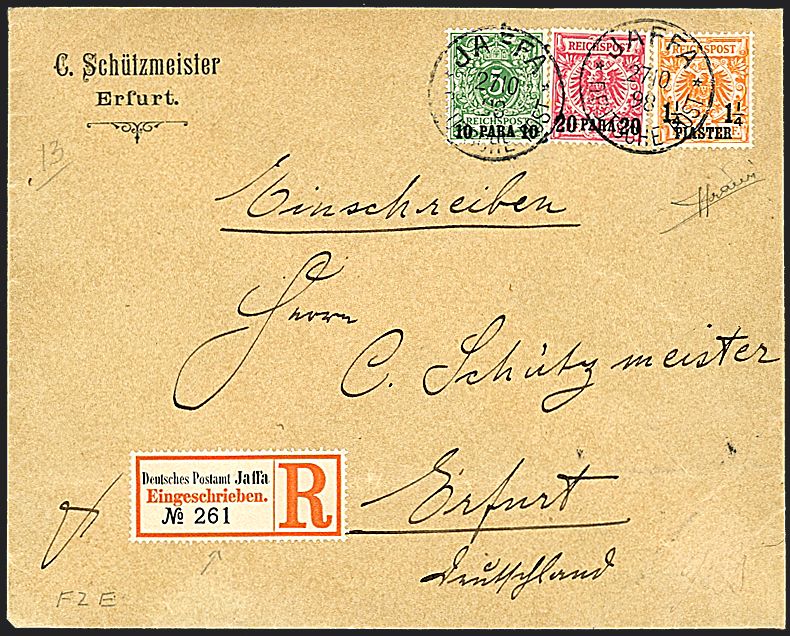 C. Schützmeister
Erfurt.
REICHSPOST
10 PARA 10
REICHSPOST
20 PARA 20
REICHSPOST
1¼ 1¼
PIASTER
JAFFA
27 10
98
DEUTSCHE POST
JAFFA
27 10
98
DEUTSCHE POST
13
Einschreiben
Herrn
C. Schützmeister
Deutsches Postamt Jaffa
Eingeschrieben.
№ 261
R
Erfurt
Deutschland
FZE